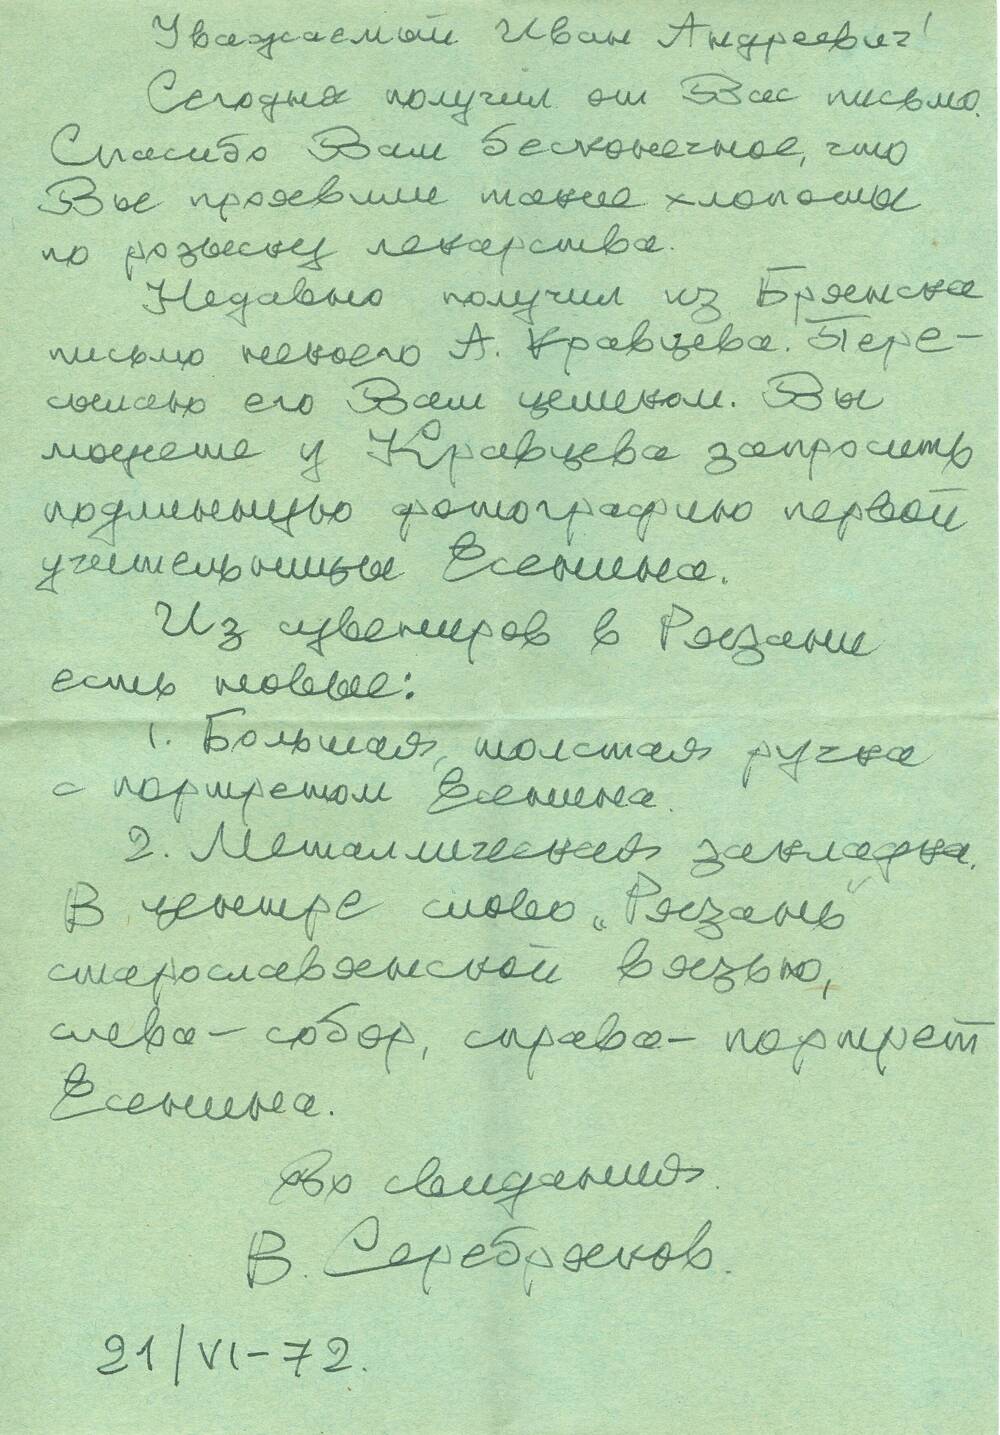 Уважаемый Иван Андреевич!
Сегодня получил от Вас письмо.
Спасибо Вам бесконечное, что
Вы проявили такие хлопоты
по розыску лекарства.
Недавно получил из Брянска
письмо некоего А. Кравцева. Пере-
сылаю его Вам целиком. Вы
можете у Кравцева запросить
подлинную фотографию первой
учительницы Есенина.
Из сувениров в Рязани
есть новые:
1. Большая, толстая ручка
с портретом Есенина.
2. Металлическая закладка.
В центре слово „Рязань“
старославянской вязью,
слева – собор, справа – портрет
Есенина.
До свидания.
В. Серебряков.
21/VI–72.